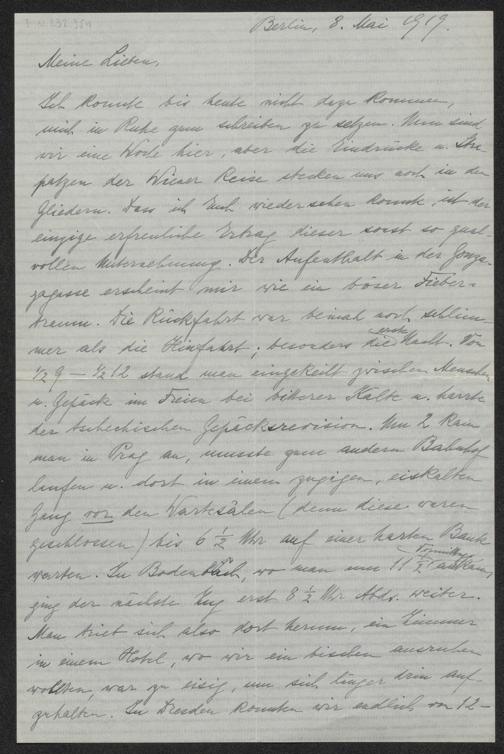 I.N. 232.954
Berlin, 8. Mai 1919.
Meine Lieben,
Ich konnte bis heute nicht dazu kommen,
mich in Ruhe zum schreiben zu setzen. Nun sind
wir eine Woche hier, aber die Eindrücke u. Stra-
patzen der Wiener Reise stecken uns noch in den
Gliedern. Dass ich Euch wiedersehen konnte, ist der
einzige erfreuliche Ertrag dieser sonst so qual-
vollen Unternehmung. Der Aufenthalt in der Gonza-
zagasse erscheint mir wie ein böser Fieber-
traum. Die Rückfahrt war beinah noch schlim-
mer als die Hinfahrt, besonders die erste Nacht. Von
½ 9 – ½ 12 stand man eingekeilt zwischen Menschen
u. Gepäck im Freien bei bitterer Kälte u. harrte
der tschechischen Gepäcksrevision. Um 2 kam
man in Prag an, musste zum andern Bahnhof
laufen u. dort in einem zugigen, eiskalten
Gang vor den Wartesälen (denn diese waren
geschlossen) bis 6 ½ Uhr auf einer harten Bank
warten. In Bodenbach, wo man um 11 ½ Vormittag ankam,
ging der nächste Zug erst 8 ½ Uhr Abds. weiter.
Man trieb sich also dort herum, ein Zimmer
in einem Hotel, wo wir ein bischen ausruhen
wollten, war zu eisig, um sich länger drin auf-
zuhalten. In Dresden konnten wir endlich von 12–